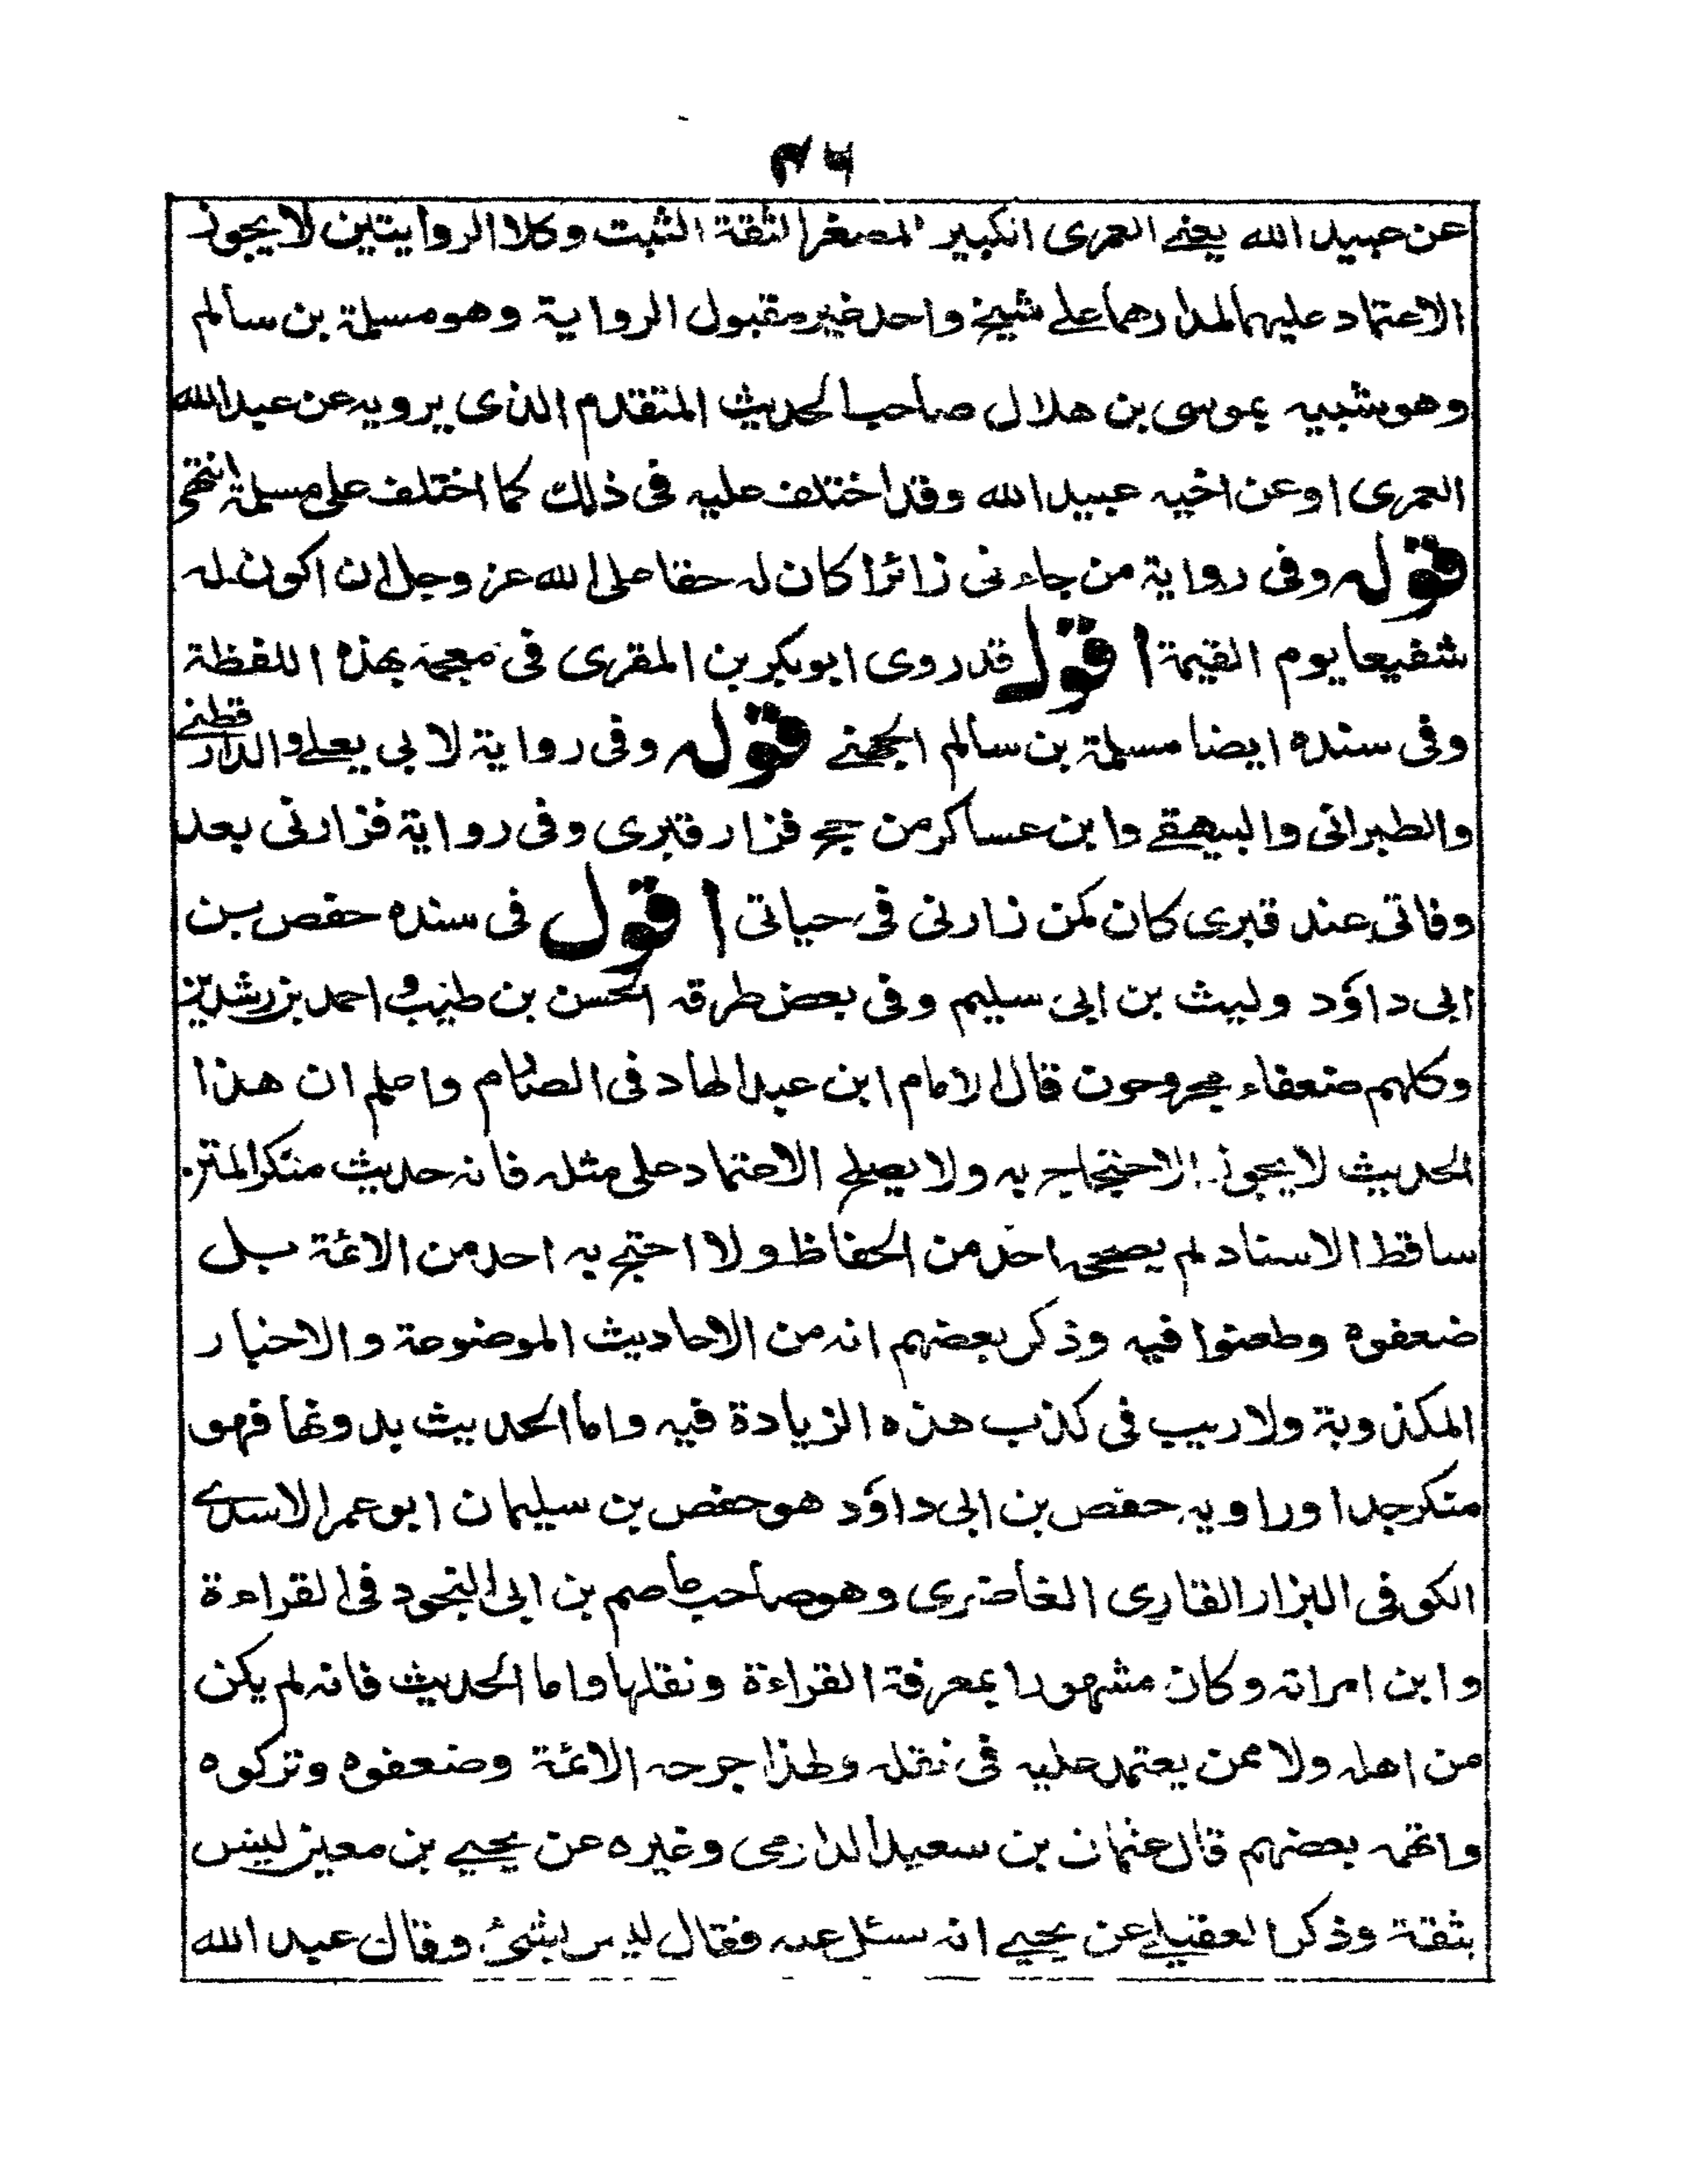 ٤٦
عن عبيد الله يعنى العمرى الكبير المصغر الثقة الثبت وكلا الروايتين لا يجوز
الاعتماد عليهما لمدارهما على شيخ واحد غير مقبول الرواية وهو مسلمة بن سالم
وهو شبيه بموسى بن هلال صاحب الحديث المتقدم الذى يرويه عن عبد الله
العمرى او عن اخيه عبيد الله وقد اختلف عليه فى ذلك كما اختلف على مسلمة انتهى
قوله وفى رواية من جاءنى زائرا كان له حقا على الله عز وجل ان اكون له
شفيعا يوم القيمة اقول قد روى ابو بكر بن المقرى فى معجمه بهذه اللفظة
وفى سنده ايضا مسلمة بن سالم الجهنى قوله وفى رواية لابى يعلى والدار قطنى
والطبرانى والبيهقى وابن عساكر من حج فزار قبرى وفى رواية فزارنى بعد
وفاتى عند قبرى كان كمن زارنى فى حياتى اقول فى سنده حفص بن
ابى داؤد وليث بن ابى سليم وفى بعض طرقه الحسن بن طيب و احمد بن رشدين
وكلهم ضعفاء مجروحون قال الامام ابن عبد الهاد فى الصارم واعلم ان هذا
الحديث لا يجوز الاحتجاج به ولا يصلح الاعتماد على مثله فانه حديث منكر المتن
ساقط الاسناد لم يصححه احد من الحفاظ ولا احتج به احد من الائمة بل
ضعفوه وطعنوا فيه وذكر بعضهم انه من الاحاديث الموضوعة والاخبار
المكذوبة ولا ريب فى كذب هذه الزيادة فيه واما الحديث بدونها فهو
منكر جدا وراويه حفص بن ابى داؤد هو حفص بن سليمان ابو عمر الاسدى
الكوفى البزار القارى الغاضرى وهو صاحب عاصم بن ابى النجود فى القراءة
وابن امراته وكان مشهورا بمعرفة القراءة ونقلها واما الحديث فانه لم يكن
من اهله ولا ممن يعتمد عليه فى نقله ولهذا جرحه الائمة وضعفوه وتركوه
واتهمه بعضهم قال عثمان بن سعيد الدارمى وغيره عن يحيى بن معين ليس
بثقة وذكر العقيلى عن يحيى انه سئل عنه فقال ليس بشئ وقال عبد الله